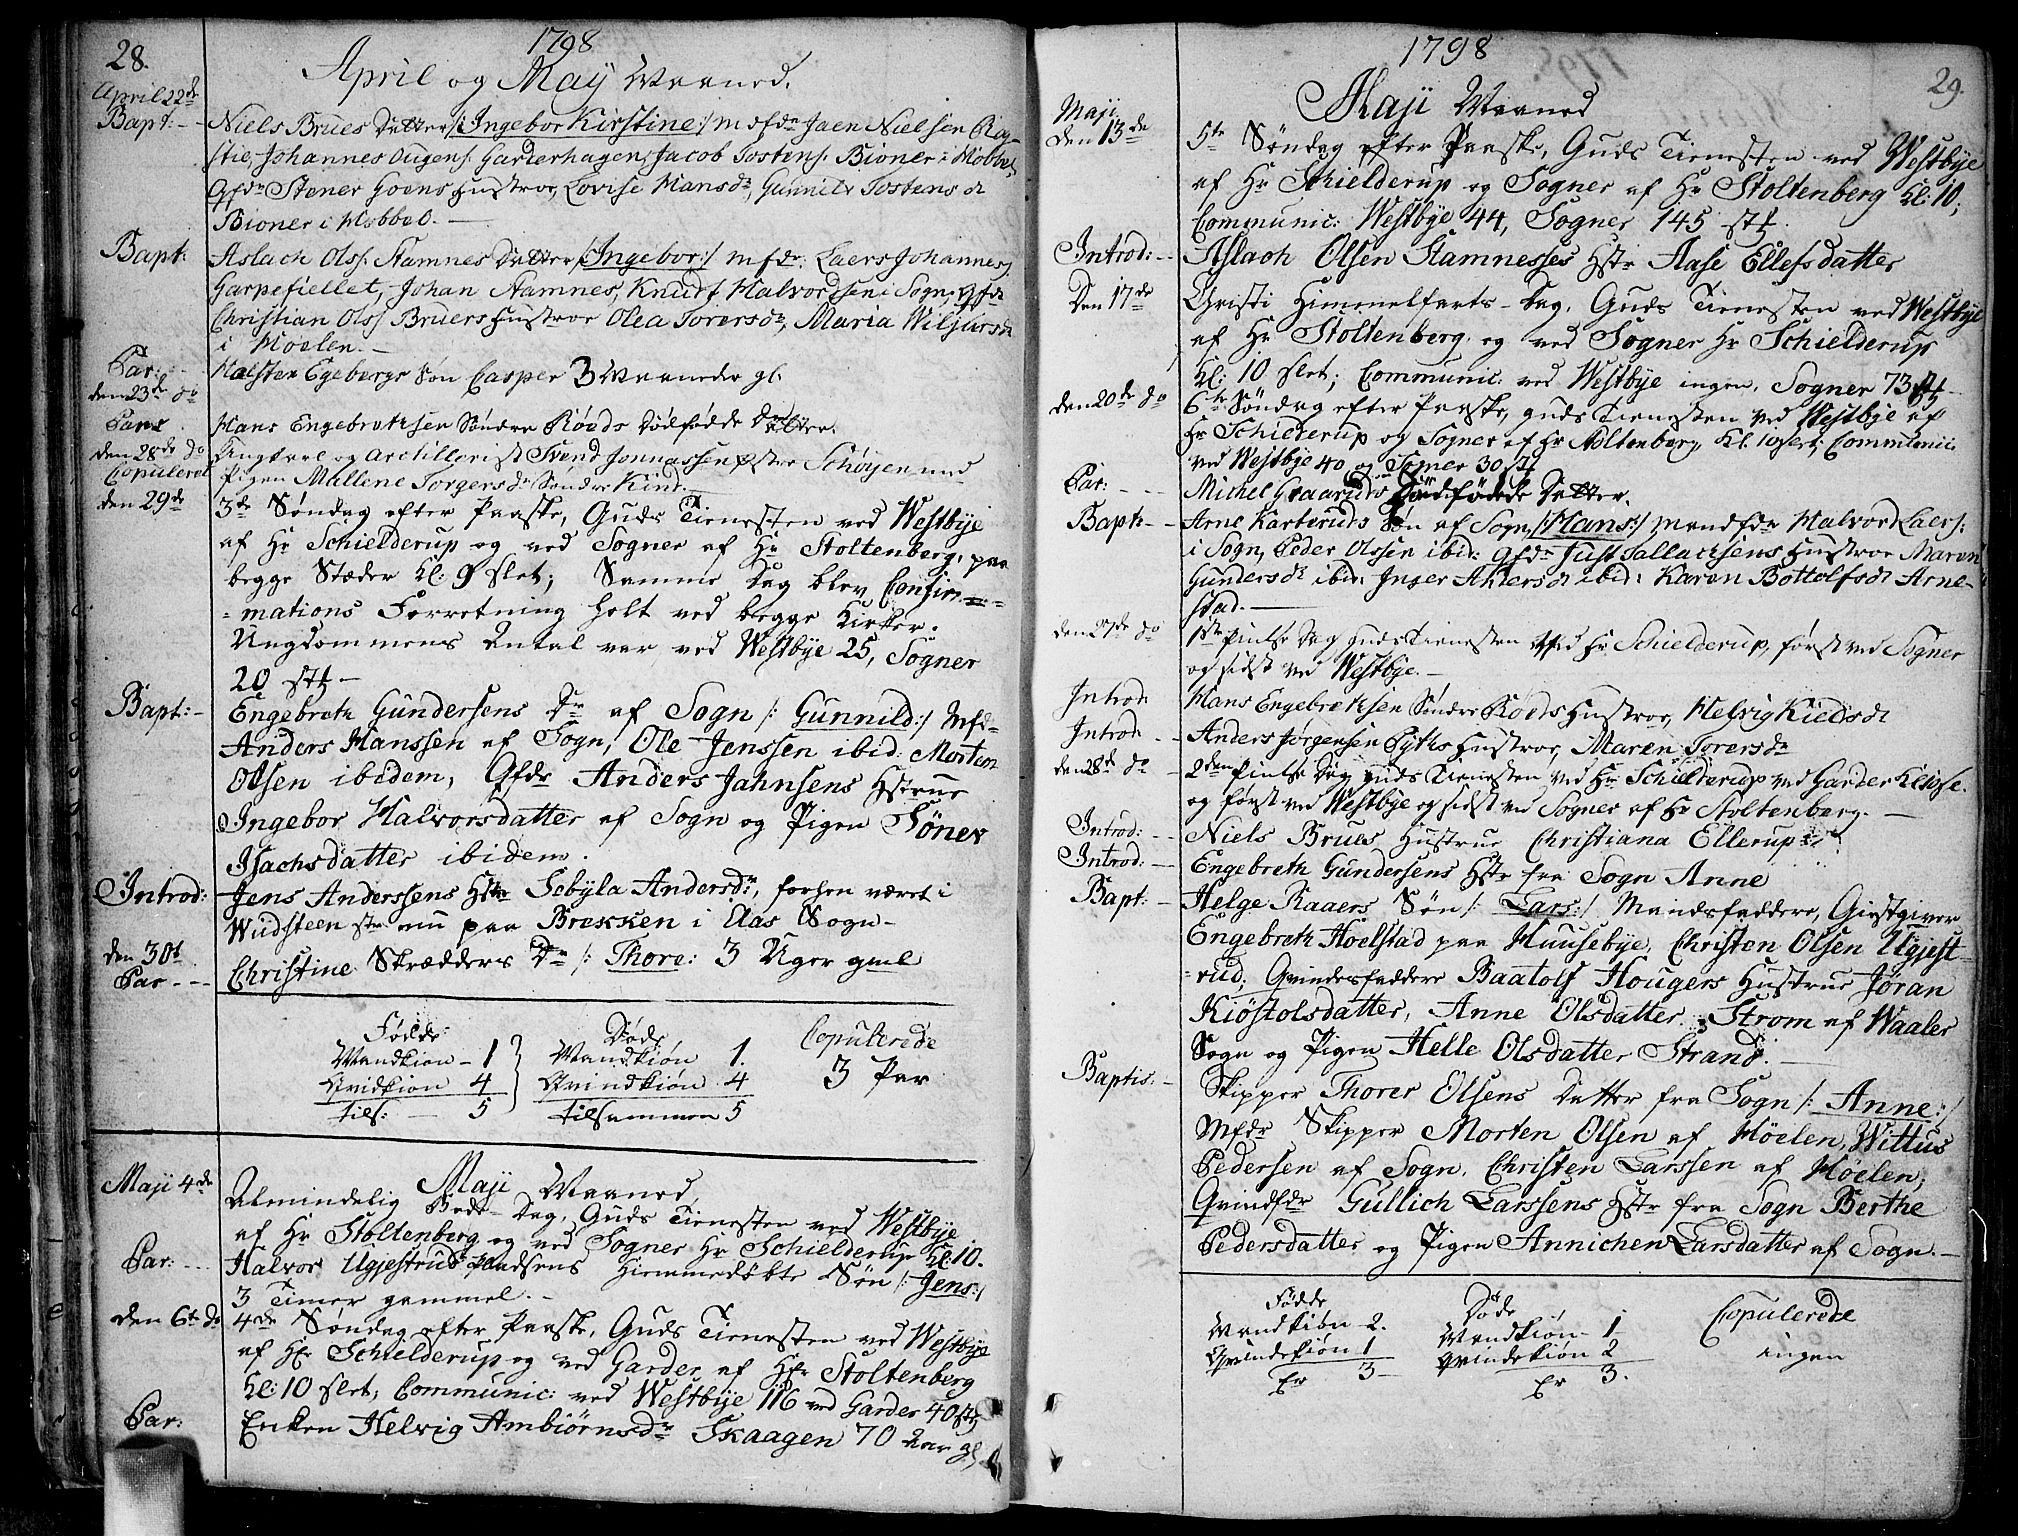 28.
1798
April og May Maaned.
April 22de
Bapt: - Niels Brues Datter /:Ingebor Kirstine:/ mdfdr Jaen Nielsen Rog-
stie, Johannes Ougens: Garderhagen, Jacob Tostens: Bioner i Mobbel
Qfdr Stener Goens Hustroe, Lovise Hansdr, Gunnild Tostensdr
Bioner i Mobbel. -
Bapt: Aslach Olss: Stamnes Datter /:Ingebor:/ mfdr: Laers Johannes:
Garpefiellet, Johan Stamnes, Knudt Halvordsen i Sogn, Qfdr
Christian Olss: Bruers Hustroe Olea Torersdr, Maria Wiljumsdr
i Moelen. -
Par: - Halsten Egebergs Søn Casper 3 Maaneder gl:
den 23de do
Par: Hans Engebrethsen Søndre Røeds Dødfødde Datter.
den 28de do Ungkarl og Artillerist Svend Jonnassen Østre Schøyen med
Copuleret Pigen Mallene Torgersdr Søndre Kind. -
den 29de 3de Søndag efter Paaske, Guds Tienesten ved Westbye
af Hr Schielderup og ved Sogner af Hr Stoltenberg, paa
begge Stæder Kl: 9 Slet; Samme Dag blev Confir-
-mations Forretning holt ved begge Kirker.
Ungdommens Antal var ved Westbye 25, Sogner
20 stk -
Bapt: - Engebreth Gundersens Dr af Sogn /: Gunnild:/ Mfdr
Anders Hanssen af Sogn, Ole Jenssen ibid: Morten
Olsen ibidem, Qfdr Anders Jahnsens Hstrue
Ingebor Halvorsdatter af Sogn og Pigen Töner
Isachsdatter ibidem.
Introd: Jens Anderssens Hstr Sebyla Andersdr, forhen været i
Wudsteen nu paa Brekken i Aas Sogn -
den 30t
Par - - Christine Skrædders Dr /: Thore: 3 Uger gml
Fødde Døde Copulerede
Mandkien - 1 Mandkiøn 1. 3 Par
Qvidkion 4 Qvindkiøn 4
tils: - 5 tilsammen 5
Maji Maaned
Maji 4de Almindelig Bede-Dag, Guds Tienesten ved Westbye
af Hr Stoltenberg og ved Sogner Hr Schielderup Kl: 10.
Par: - - Halvor Ugjestrud Hiemmedøbte Søn /: Jens:/
3 Timer gammel. -
den 6te do 4de Søndag efter Paaske, Guds Tienesten ved Westbye
af Hr Schielderup og ved Garder af Hr Stoltenberg
Kl: 10 slet; Communic: ved Westbye 116 ved Garder 40 stk
Par: Enken Helvig Ambiörnsdr Skaagen 70 Aar gl
1798
29.
Maji Maaned
Maji
den 13de 5te Søndag efter Paaske, Guds Tienesten ved Westbye
af Hr Schielderup og Sogner af Hr Stoltenberg Kl: 10;
Communic: Westbye 44, Sogner 145 stk.
Introd: - Aslach Olsen Stamnesses Hstr Aase Ellefsdatter
Den 17de Christi Himmelfarts-Dag, Guds Tienesten ved Westbye
af Hr Stoltenberg og ved Sogner Hr Schielderup
Kl: 10 slet; Communic: ved Westbye ingen, Sogner 73 stk
den 20de do 6te Søndag efter Paaske, Guds Tienesten ved Westbye af
Hr Schielderup og Sogner af Hr Stoltenberg, Kl. 10 slet; Communic:
ved Westbye 40 og Sogner 30 stk
Par: - - - Michel Graaruds Dødfødde Datter.
Bapt: - Arne Karteruds Søn af Sogn, /:Hans:/ Mandfdr Halvord Laers:
i Sogn, Peder Olssen ibid: Qfdr Just Tallachsens Hustroe Maren
Gundersdr ibid: Inger Ahlersdr ibid: Karen Bottolfsdr Arne-
stad. -
den 27de do 1ste Pintse Dag Guds Tienesten ved Hr Schielderup, først ved Sogner
og sidst ved Westbye. -
Introd: Hans Engebrethsen Søndre Røeds Hustroe, Helvig Kieldsdr
Introd: - - Anders Jørgensen Pyths Hustroe, Maren Torersdr
den 28de do - 2den Pintse Dag Guds Tienesten ved Hr Schielderup ved Garder Kirke.
og først ved Westbye og sidst ved Sogner af Hr Stoltenberg. -
Introd: - - Niels Brues Hustrue Christiana Ellerups:
Introd: - Engebreth Gundersens Hstr fra Sogn Anne
Bapt: - Helge Raaers Søn /: Lars:/ Mandsfaddere, Giestgiver
Engebreth Hoelstad paa Huusebye, Christen Olsen Ugjest-
-rud, Qvindesfaddere Baatolf Hougers Hustrue Jøran
Kiöstolsdatter, Anne Olsdatter Strom af Waaler
Sogn og Pigen Helle Olsdatter Strand. -
Baptis: - Skipper Thorer Olsens Datter fra Sogn /: Anne:/
Mfdr Skipper Morten Olsen af Möelen, Wittus
Pedersen af Sogn, Christen Larssen af Möelen,
Qvindfdr Gullich Larssens Hstr fra Sogn Berthe
Pedersdatter og Pigen Annichen Larsdatter af Sogn. -
Fødde Døde Copulerede
Mandkiön 2. Mandkiön - 1 ingen
Qvindekiön 1 Qvindekiön 2
Er 3 - Er 3.